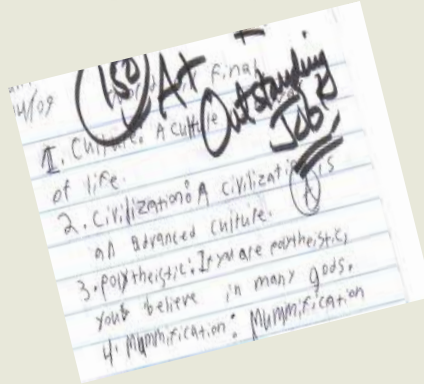 150 A+ Final
4/09 Outstanding Job!
1. Culture: A culture
of life.
2. Civilization: A civilization is
an advanced culture.
3. polytheistic: If you are poytheistic,
you believe in many gods.
4. Mummification: Mummification